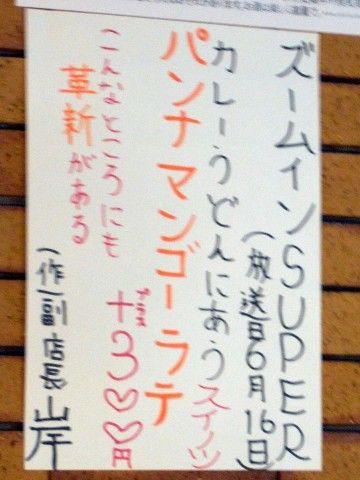 ズームインSUPER
(放送日6月16日)
カレーうどんにあうスイーツ
パンナマンゴーラテ
プラス
+300円
こんなところにも
革新がある
一作副店長 岸